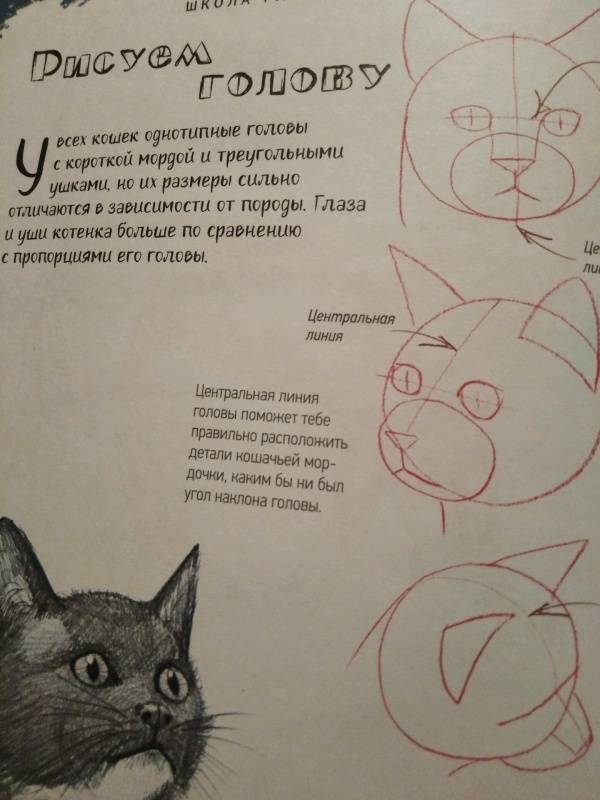 ШКОЛА
Рисуем
голову
У всех кошек однотипные головы
с короткой мордой и треугольными
ушками, но их размеры сильно
отличаются в зависимости от породы. Глаза
и уши котенка больше по сравнению
с пропорциями его головы.
Центральная
линия
Центральная линия
головы поможет тебе
правильно расположить
детали кошачьей мор-
дочки, каким бы ни был
угол наклона головы.